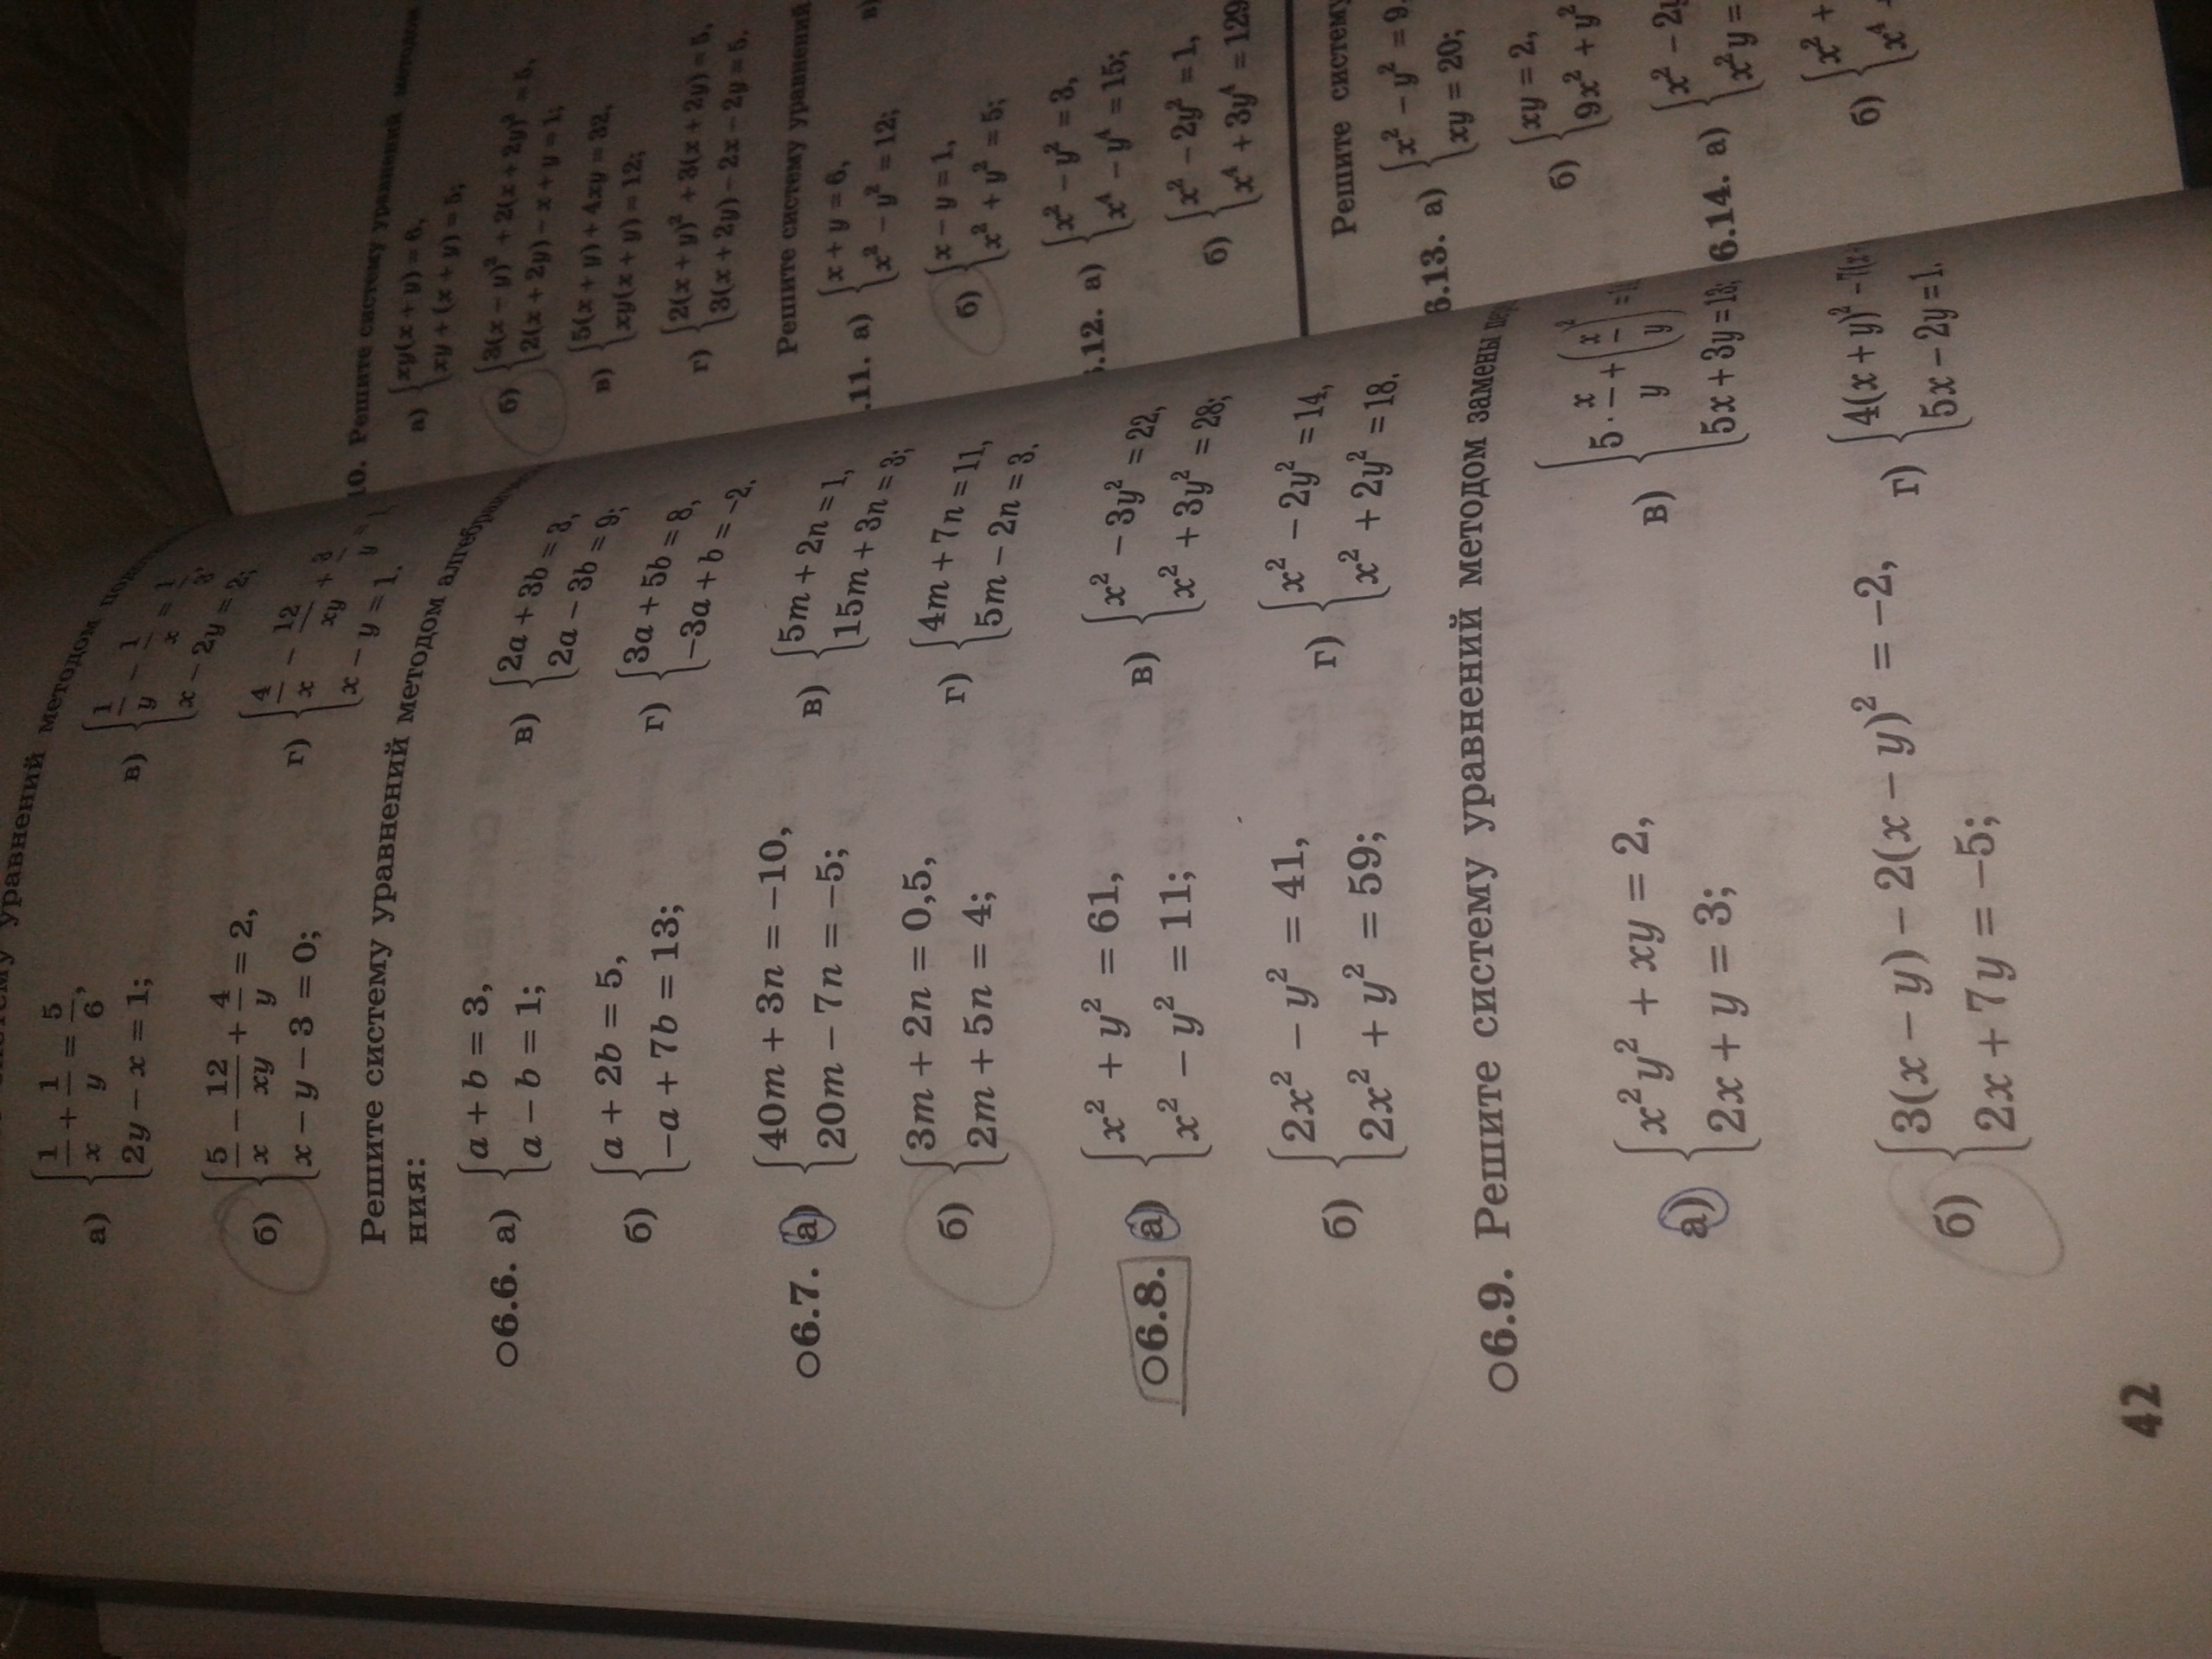 уравнений методом
а) { 1/x + 1/y = 5/6,
2y − x = 1;
б) { 5/x − 12/xy + 4/y = 2,
x − y − 3 = 0;
в) { 1/y − 1/x = 1/3,
x − 2y = 2;
г) { 4/x − 12/xy
x − y = 1.
Решите систему уравнений методом
ния:
○6.6. а) { a + b = 3,
a − b = 1;
б) { a + 2b = 5,
−a + 7b = 13;
в) { 2a + 3b = 3,
2a − 3b = 9;
г) { 3a + 5b = 8,
−3a + b = −2.
○6.7. а) { 40m + 3n = −10,
20m − 7n = −5;
б) { 3m + 2n = 0,5,
2m + 5n = 4;
в) { 5m + 2n = 1,
15m + 3n = 3;
г) { 4m + 7n = 11,
5m − 2n = 3.
○6.8. а) { x² + y² = 61,
x² − y² = 11;
б) { 2x² − y² = 41,
2x² + y² = 59;
в) { x² − 3y² = 22,
x² + 3y² = 28;
г) { x² − 2y² = 14,
x² + 2y² = 18.
○6.9. Решите систему уравнений методом замены
а) { x²y² + xy = 2,
2x + y = 3;
б) { 3(x − y) − 2(x − y)² = −2,
2x + 7y = −5;
в) { 5 · x/y + (x/y)²
5x + 3y = 13;
г) { 4(x + y)² − 7(x
5x − 2y = 1.
42
10. Решите систему уравнений методом
а) { xy(x + y) = 6,
xy + (x + y) = 5;
б) { 3(x − y)² + 2(x + 2y)² = 5,
2(x + 2y) − x + y = 1;
в) { 5(x + y) + 4xy = 32,
xy(x + y) = 12;
г) { 2(x + y)² + 3(x + 2y) = 5,
3(x + 2y) − 2x − 2y = 5.
Решите систему уравнений
.11. а) { x + y = 6,
x² − y² = 12;
б) { x − y = 1,
x² + y² = 5;
в)
.12. а) { x² − y² = 3,
x⁴ − y⁴ = 15;
б) { x² − 2y² = 1,
x⁴ + 3y⁴ = 129
Решите систему
6.13. а) { x² − y² = 9,
xy = 20;
б) { xy = 2,
9x² + y²
6.14. а) { x² − 2y
x²y =
б) { x² +
x⁴